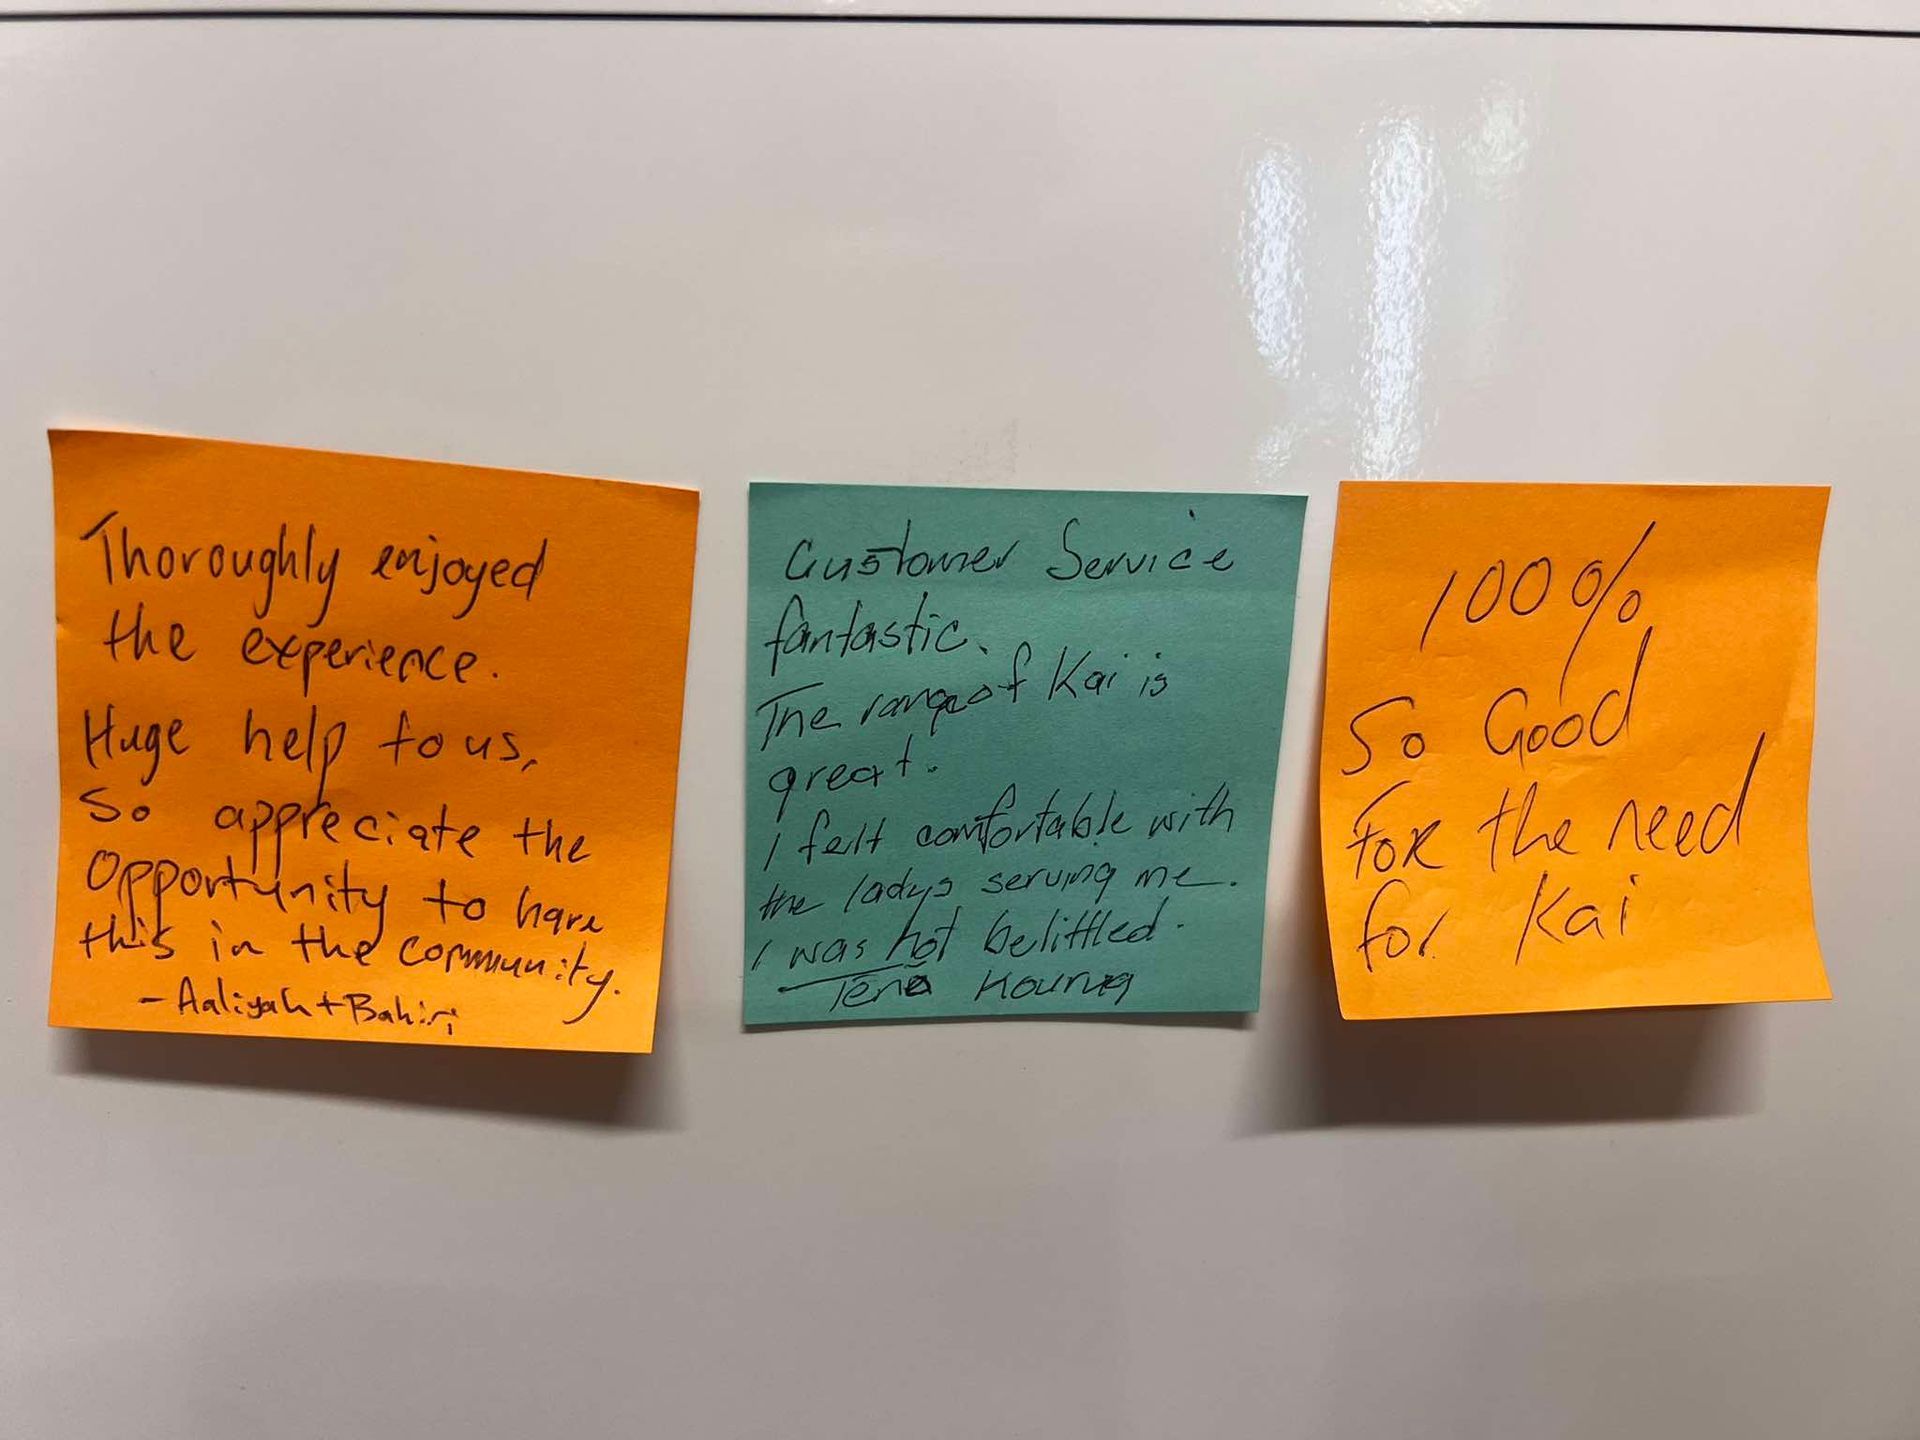 Thoroughly enjoyed
the experience.
Huge help to us,
So appreciate the
Opportunity to have
this in the community.
- Aaliyah + Bahiri
Customer Service
fantastic.
The range of Kai is
great.
I felt comfortable with
the ladys serving me.
I was not belittled.
Tena Kourua
100%
So Good
For the need
for Kai